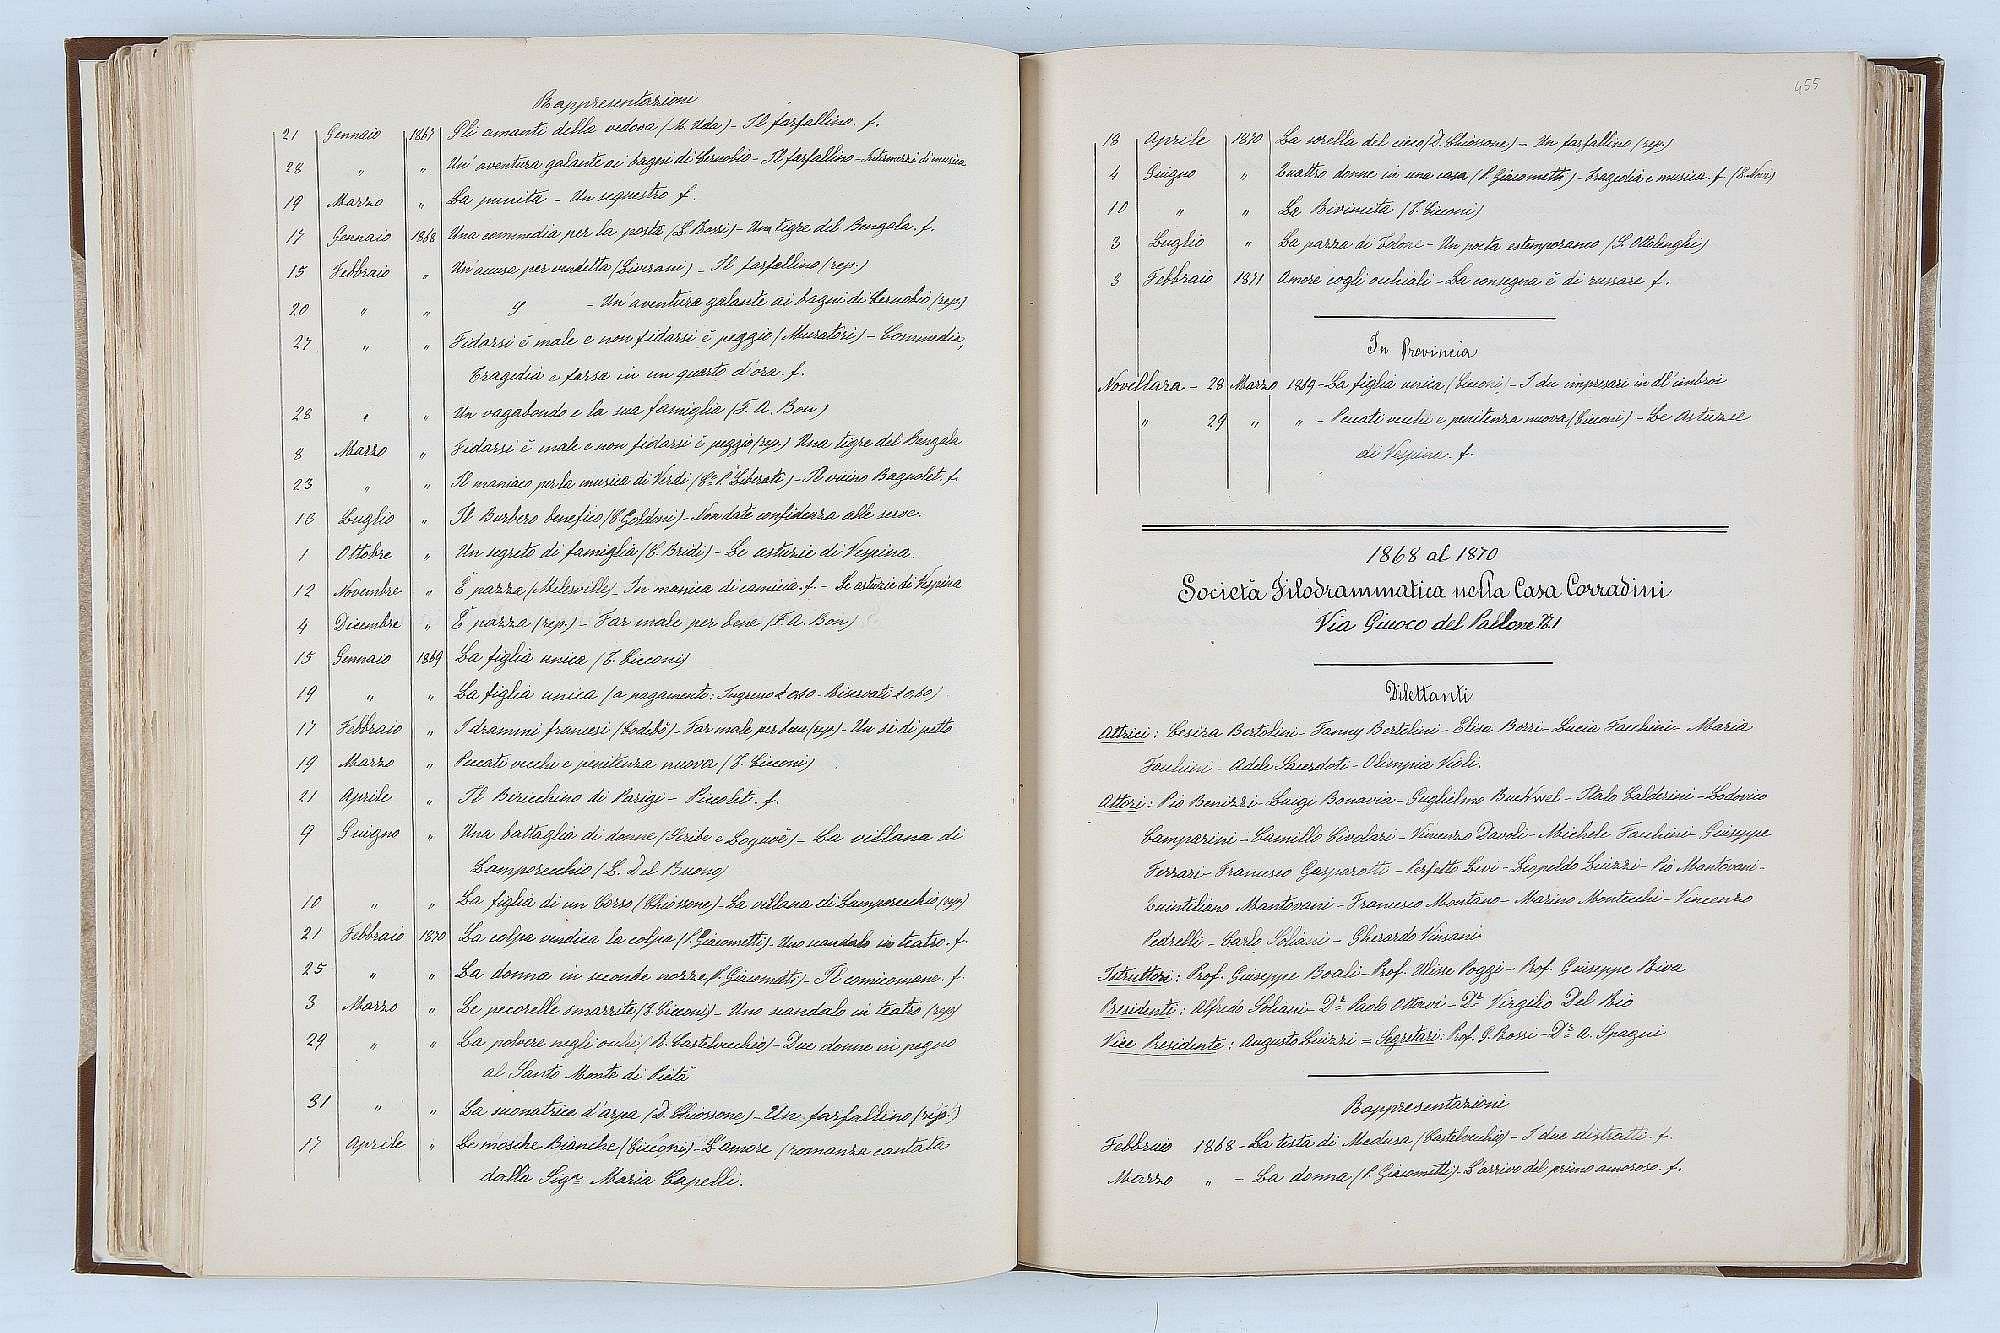 Rappresentazioni
21 Gennaio 1867 Gli amanti della vedova (M. Uda) - Il farfallino. f.
28 " " Un' aventura galante ai bagni di Cernobio - Il farfallino - Intermezzi di musica
19 Marzo " La punita - Un sequestro f.
17 Gennaio 1868 Una commedia per la posta (L. Borsi) - Una tigre del Bengala. f.
15 Febbraio " Un' accusa per vendetta (Liverani) - Il farfallino (rep.)
20 " " " - Un' aventura galante ai bagni di Cernobio (rep.)
27 " " Fidarsi è male e non fidarsi è peggio (Muratori) - Commedia,
Tragedia e farsa in un quarto d'ora. f.
28 " " Un vagabondo e la sua famiglia (F. A. Bon)
8 Marzo " Fidarsi è male e non fidarsi è peggio (rep.) Una tigre del Bengala
23 " " Il maniaco per la musica di Verdi (Liberati) - Il vicino Bagnolet. f.
18 Luglio " Il Burbero benefico (C. Goldoni) - Non date confidenza alle serve.
1 Ottobre " Un segreto di famiglia (C. Bridi) - Le astuzie di Vespina
12 Novembre " È pazza (Melesville) - In manica di camicia. f. - Le astuzie di Vespina
4 Dicembre " È pazza (rep.) - Far male per bene (F. A. Bon)
15 Gennaio 1869 La figlia unica (T. Cicconi)
19 " " La figlia unica (a pagamento: Ingresso £ 0.30 - Riservati £ 0.60)
17 Febbraio " I drammi francesi (Codebò) - Far male per bene (rep.) - Un si di petto
19 Marzo " Peccati vecchi e penitenza nuova (T. Cicconi)
21 Aprile " Il Biricchino di Parigi - Piccolet. f.
9 Guigno " Una battaglia di donne (Scribe e Loguvè) - La villana di
Lamporecchio (L. Del Buono)
10 " " La figlia di un Corso (Chiossone) - La villana di Lamporecchio (rep.)
21 Febbraio 1870 La colpa vendica la colpa (P. Giacometti) - Uno scandalo in teatro. f.
25 " " La donna in seconde nozze (P. Giacometti) - Il comicomane. f.
3 Marzo " Le pecorelle smarrite (T. Cicconi) - Uno scandalo in teatro (rep)
29 " " La polvere negli occhi (R. Castelvecchio) - Due donne in pegno
al Santo Monte di Pietà
31 " " La suonatrice d'arpa (D. Chiossone) - Un farfallino (rep.)
17 Aprile " Le mosche Bianche (Cicconi) - L'amore (romanza cantata
dalla Sigra Maria Capelli.
455
18 Aprile 1870 La sorella del cieco (D. Chiossone) - Un farfallino (rep.)
4 Guigno " Quattro donne in una casa (P. Giacometti) - Tragedia e musica. f.
10 " " La Rivincita (T. Cicconi)
3 Luglio " La pazza di Tolone - Un poeta estemporaneo (S. Ottolenghi)
3 Febbraio 1871 Amore cogli occhiali - La consegna è di russare f.
In Provincia
Novellara - 28 Marzo 1869 - La figlia unica (Cicconi) - I due impresari in all'imbroi
" 29 " " - Peccati vecchi e penitenza nuova (Cicconi) - Le Astuzie
di Vespina. f.
1868 al 1870
Società Filodrammatica nella Casa Corradini
Via Giuoco del Pallone N. 1
Dilettanti
Attrici: Cesira Bortolini - Fanny Bortolini - Elisa Borri - Lucia Facchini - Maria
Facchini - Adele Sacerdoti - Olimpia Violi.
Attori: Pio Benizzi - Luigi Bonavia - Guglielmo Buckwel - Italo Calderini - Lodovico
Camparini - Camillo Civolari - Vincenzo Davoli - Michele Facchini - Giuseppe
Ferrari - Francesco Gasparotti - Perfetto Levi - Leopoldo Luizzi - Pio Mantovani -
Quintiliano Mantovani - Francesco Montano - Marino Montecchi - Vincenzo
Pedrelli - Carlo Soliani - Gherardo Vinsani
Istruttori: Prof. Giuseppe Boali - Prof. Ulisse Poggi - Prof. Guiseppe Riva
Presidenti: Alfredo Soliani - Dr. Paolo Ottavi - Dr. Virgilio Del Rio
Vice Presidente: Augusto Luizzi = Segretari: Prof. G. Rossi - Dr. A. Spagni
Rappresentazioni
Febbraio 1868 - La testa di Medusa (Castelvecchio) - I due distratti. f.
Marzo " - La donna (P. Giacometti) - L'arrivo del primo amoroso. f.